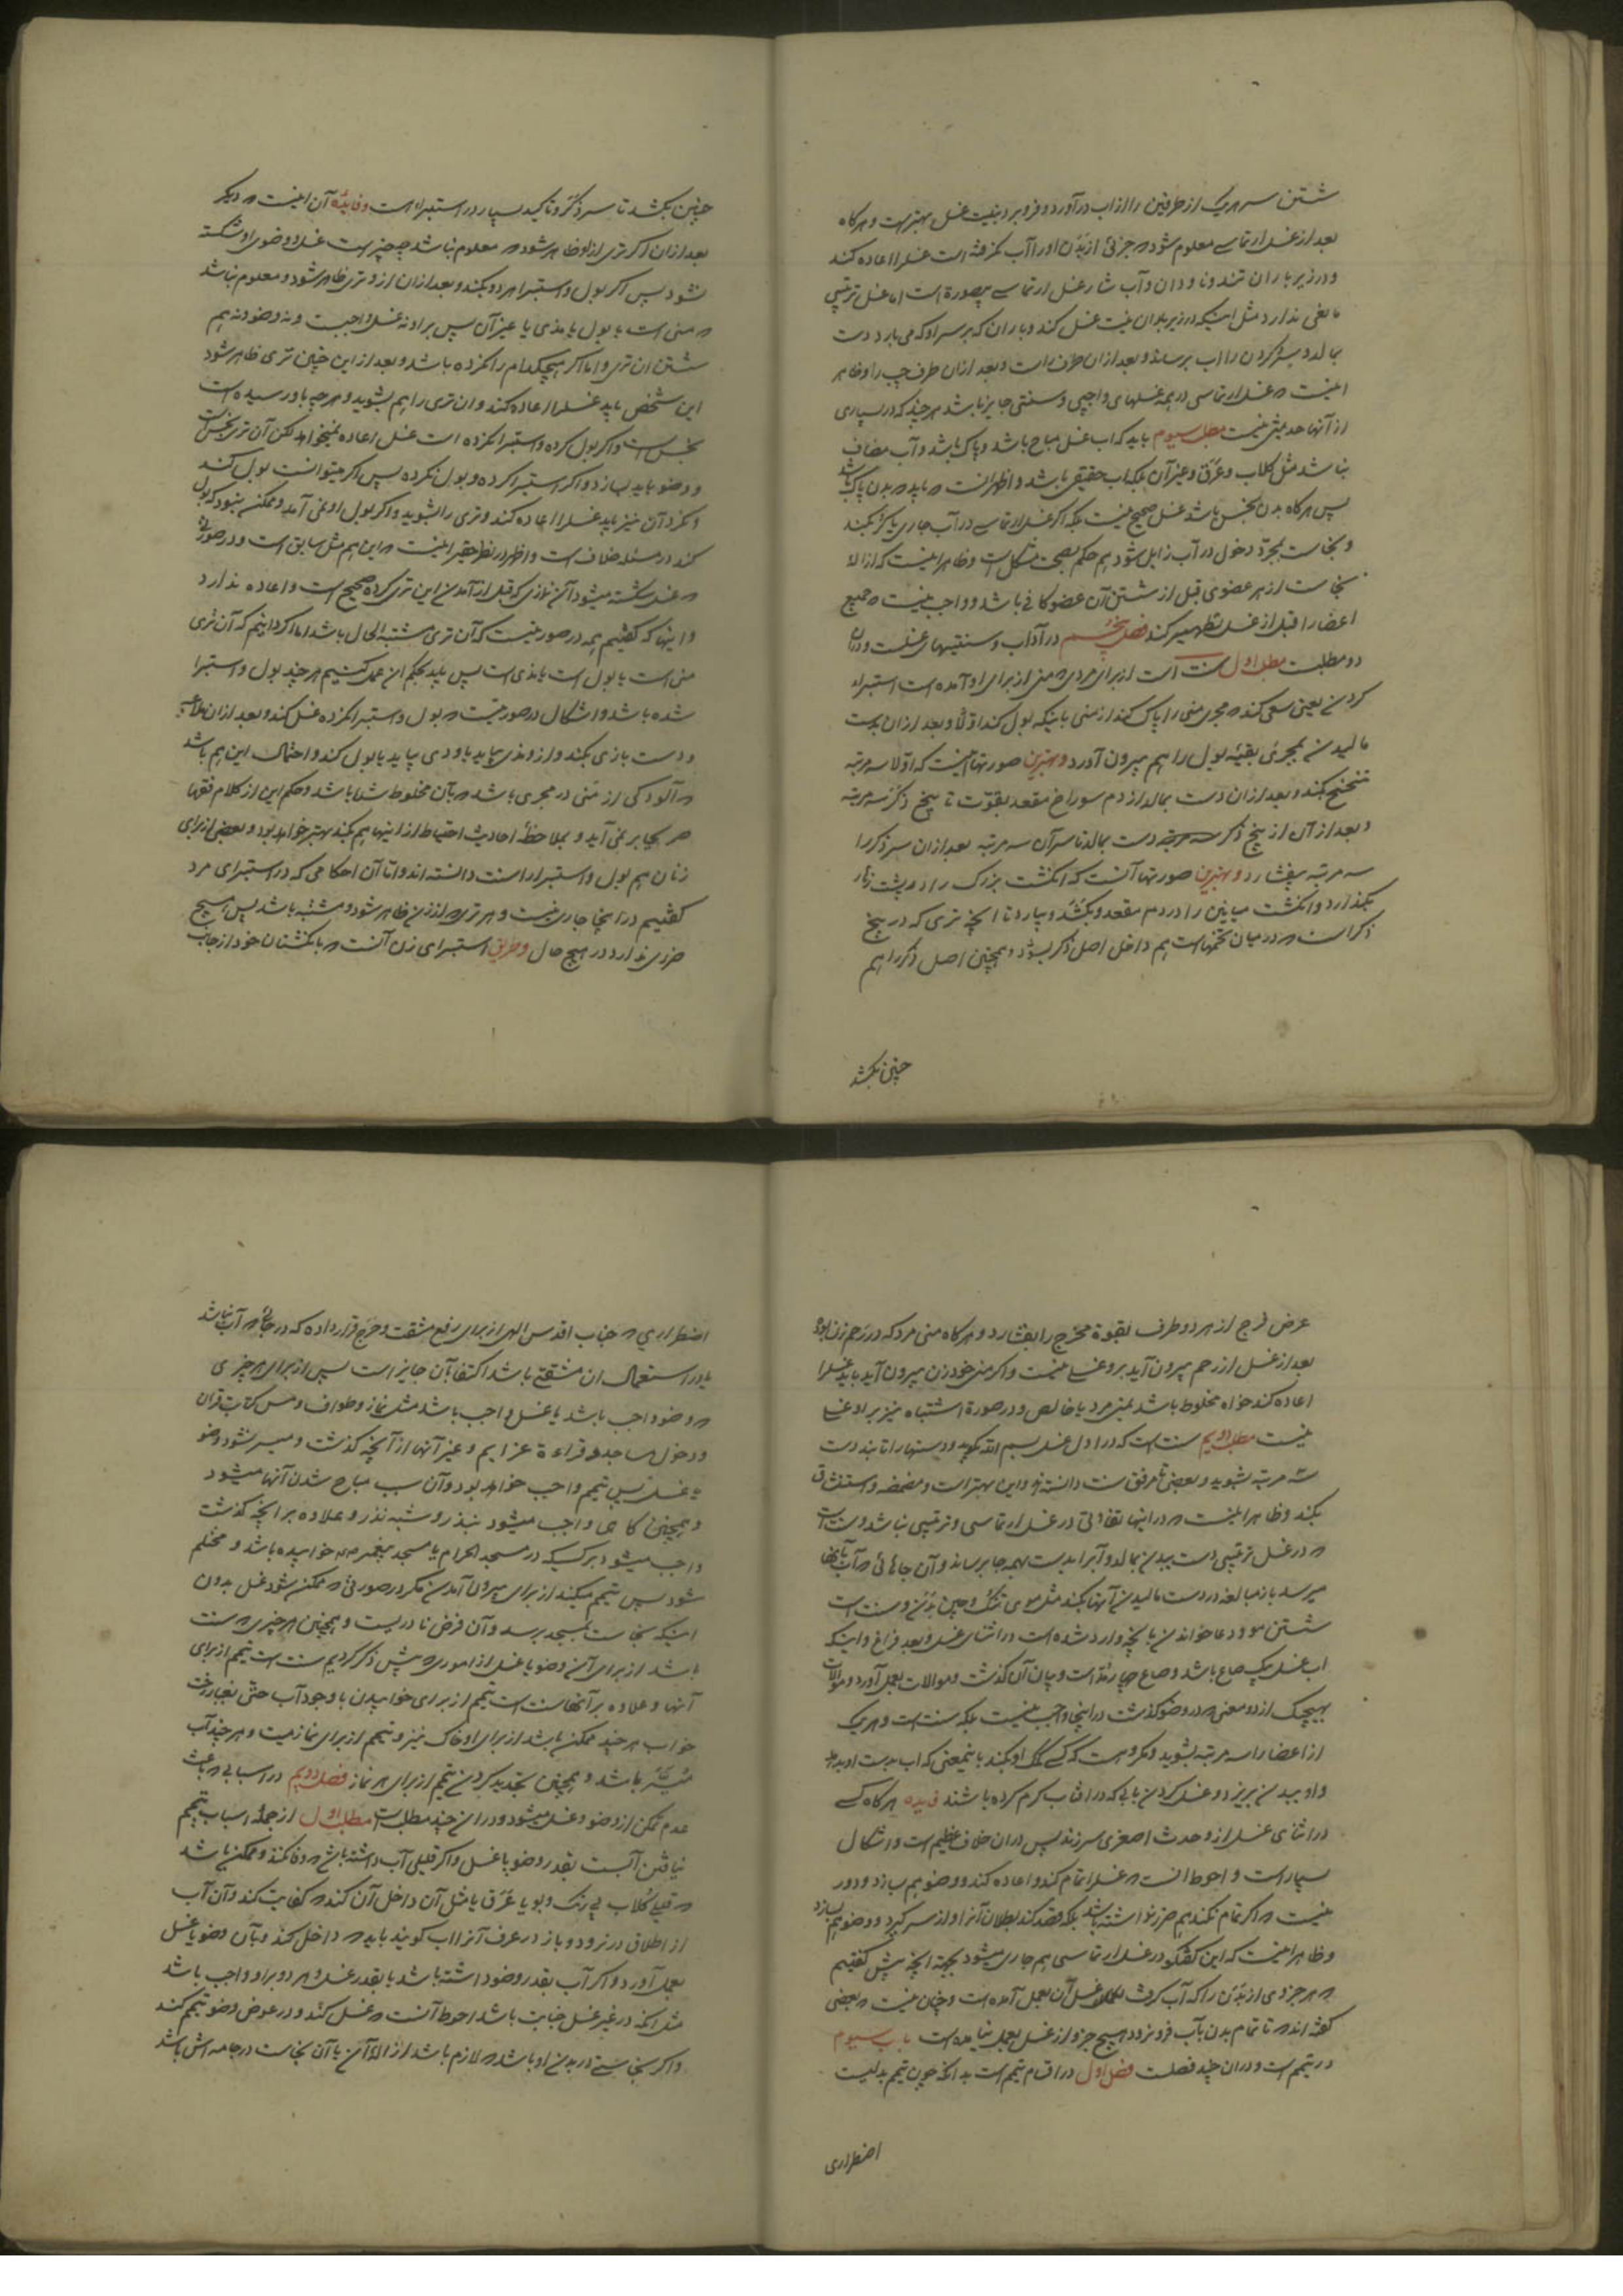 شستن سر هر یک از طرفین را از آب درآورد و فرو برد بنیت غسل بهتر است و هر گاه
بعد از غسل ارتماسی معلوم شود که جزئی از بدن او را آب نگرفته است غسل را اعاده کند
و در زیر باران تند و ناودان و آبشار غسل ارتماسی بیصورة است اما غسل ترتیبی
مانعی ندارد مثل اینکه در زیر باران نیت غسل کند و باران که بر سر او که می بارد دست
بمالد و بسر و گردن را آب برساند و بعد از آن طرف راست و بعد از آن طرف چپ را و ظاهر
اینست که غسل ارتماسی در همه غسلهای واجبی و سنتی جایز باشد هر چند که در بسیاری
از آنها حدیثی نیست مطلب سیوم باید که آب غسل مباح باشد و پاک باشد و آب مضاف
نباشد مثل گلاب و عرق و غیر آن بلکه آب حقیقی باشد و اظهر آنست که باید که بدن پاک باشد
پس هر گاه بدن نجس باشد غسل صحیح نیست بلکه اگر غسل ارتماسی در آب جاری یا کر بکند
و نجاست بمجرد دخول در آب زایل شود هم حکم بصحت مشکل است و ظاهر اینست که ازاله
نجاست از هر عضوی قبل از شستن آن عضو کافی باشد و واجب نیست که جمیع
اعضا را قبل از غسل تطهیر کند فصل پنجم در آداب و سنتیهای غسلست و در آن
دو مطلبست مطلب اول سنت است از برای مردی که منی از برای او آمده است استبراء
کردن یعنی سعی کند که مجری منی را پاک کند از منی باینکه بول کند اولا و بعد از آن بدست
مالیدن بمجری بقیه بول را هم بیرون آورد و بهترین صورتها اینست که اولا سه مرتبه
تنحنح بکند و بعد از آن دست بمالد از دم سوراخ مقعد بقوت تا بیخ ذکر سه مرتبه
و بعد از آن از بیخ ذکر دست بمالد تا سر آن سه مرتبه بعد از آن سر ذکر را
سه مرتبه بیفشارد و بهترین صورتها آنست که انگشت بزرگ را در پشت زهار
بگذارد و انگشت میانین را در دم مقعد و بکشد و بیارد تا آنچه تری که در بیخ
ذکر است که در میان تخمهاست هم داخل اصل ذکر بشود و همچنین اصل ذکر را هم
چنین بکشد
چنین بکشد تا سر ذکر و تاکید بسیار در استبراء است و فایده آن اینست که دیگر
بعد از آن اگر تری از او ظاهر شود که معلوم نباشد چه چیز است غسل و وضوی او شکسته
نشود پس اگر بول و استبرا هر دو بکند و بعد از آن از او تری ظاهر شود و معلوم نباشد
که منی است یا بول یا مذی یا غیر آن پس بر او نه غسل واجبست و نه وضو و نه هم
شستن آن تری و اما اگر هیچکدام را نکرده باشد و بعد از این چنین تری ظاهر شود
این شخص باید غسل را اعاده کند و آن تری را هم بشوید و هر چه باو رسیده است
نجس است و اگر بول کرده و استبرا نکرده است غسل اعاده نمیخواهد لکن آن تری نجس است
و وضو باید بسازد و اگر استبرا کرده و بول نکرده پس اگر میتوانست بول کند
و نکرد آن نیز باید غسل را اعاده کند و تری را بشوید و اگر بول او نمی آمد و ممکن نبود که بول
کند در مسئله خلاف است و اظهر در نظر حقیر اینست که این هم مثل سابق است و در صورتی
که غسل شکسته میشود آن نمازی که قبل از آمدن این تری کرده صحیح است و اعاده ندارد
و اینها که گفتیم همه در صورتیست که آن تری مشتبه الحال باشد اما اگر دانیم که آن تری
منی است یا بول است یا مذی است پس باید بحکم آن عمل کنیم هر چند بول و استبرا
شده باشد و اشکال در صورتیست که بول و استبرا نکرده غسل کند و بعد از آن ملاعبه
و دست بازی بکند و از او مذی بیاید یا ودی بیاید یا بول کند و احتمال این هم باشد
که آلودگی از منی در مجری باشد که بآن مخلوط شده باشد و حکم این از کلام فقها
صریحا بر نمی آید و بملاحظه احادیث احتیاط از اینها هم بکند بهتر خواهد بود و بعضی از برای
زنان هم بول و استبرا را سنت دانسته اند و اما آن احکامی که در استبرای مرد
گفتیم در اینجا جاری نیست و هر تری که از زن ظاهر شود و مشتبه باشد پس هیچ
ضرری ندارد در هیچ حال و طریق استبرای زن آنست که با انگشتان خود از جانب
عرض فرج از هر دو طرف بقوة مخرج را بفشارد و هر گاه منی مرد که در رحم زن بود
بعد از غسل از رحم بیرون آید بر او غسلی نیست و اگر منی خود زن بیرون آید باید غسل را
اعاده کند خواه مخلوط باشد بمنی مرد یا خالص و در صورة اشتباه نیز بر او غسلی
نیست مطلب دویم سنت است که در اول غسل بسم الله بگوید و دستها را تا بند دست
سه مرتبه بشوید و بعضی تا مرفق سنت دانسته اند و این بهتر است و مضمضه و استنشاق
بکند و ظاهر اینست که در اینها تفاوتی در غسل ارتماسی و ترتیبی نباشد و سنت است
که در غسل ترتیبی دست ببدن بمالد و آب را بدست بهمه جا برساند و آن جاهائی که آب بآنها
میرسد باز مبالغه در دست مالیدن آنها بکند مثل موی تنک و چین بدن و سنت است
شستن مو و دعا خواندن بآنچه وارد شده است در اثنای غسل و بعد فراغ و اینکه
آب غسل یک صاع باشد و صاع چهار مد است و بیان آن گذشت و موالات بعمل آورد و موالات
بهیچیک از دو معنی که در وضو گذشت در اینجا واجب نیست بلکه سنت است و هر یک
از اعضا را سه مرتبه بشوید و مکروه است که کسی کمک او بکند باینمعنی که آب بدست او بدهد
و او ببدن بریزد و غسل کردن بآبی که در آفتاب گرم کرده باشند فایده هر گاه کسی
در اثنای غسل از او حدث اصغری سر زند پس در آن خلاف عظیم است و اشکال
بسیار است و احوط آنست که غسل را تمام کند و اعاده کند و وضو هم بسازد و دور
نیست که اگر تمام نکند هم ضرر نداشته باشد بلکه قصد کند بطلان آنرا و از سر گیرد و وضو هم بسازد
و ظاهر اینست که این گفتگو در غسل ارتماسی هم جاری میشود بجهة آنچه پیش گفتیم
که هر جزوی از بدن را که آب گرفت غسل آن بعمل آمده است و چنان نیست که بعضی
گفته اند که تا تمام بدن بآب فرو نرود هیچ جزو از غسل بعمل نیامده است باب سیوم
در تیمم است و در آن چند فصلست فصل اول در اقسام تیمم است بدانکه چون تیمم بدلیست
اضطراری
اضطراری که جناب اقدس الهی از برای رفع مشقت و حرج قرار داده که در جائی که آب نباشد
یا در استعمال آن مشقتی باشد اکتفا بآن جایز است پس از برای هر چیزی
که وضو واجب باشد یا غسل واجب باشد مثل نماز و طواف و مس کتابت قرآن
و دخول مساجد و قراءة عزایم و غیر آنها از آنچه گذشت و میسر نشود وضو
یا غسل پس تیمم واجب خواهد بود و آن سبب مباح شدن آنها میشود
و همچنین گاهی واجب میشود بنذر و شبه نذر و علاوه بر آنچه گذشت
واجب میشود بر کسیکه در مسجد الحرام یا مسجد پیغمبر خوابیده باشد و محتلم
شود پس تیمم میکند از برای بیرون آمدن مگر در صورتی که ممکن شود غسل بدون
اینکه نجاست بمسجد برسد و آن فرض نادریست و همچنین هر چیزی که سنت
باشد از برای آن وضو یا غسل از اموری که پیش ذکر کردیم سنت است تیمم از برای
آنها و علاوه بر آنها سنت است تیمم از برای خوابیدن با وجود آب حتی بغبار رخت
خواب هر چند ممکن باشد از برای او خاک نیز و تیمم از برای نماز میت و هر چند آب
میسر باشد و همچنین تجدید کردن تیمم از برای هر نماز فصل دویم در اسبابی که باعث
عدم تمکن از وضو و غسل میشود و در آن چند مطلب است مطلب اول از جمله اسباب تیمم
نیافتن آبست بقدر وضو یا غسل و اگر قلیلی آب داشته باشد که وفا نکند و ممکن باشد
که قلیلی گلاب بی رنگ و بو یا عرق یا مثل آن داخل آن کند که کفایت کند و آن آب
از اطلاق در نرود و باز در عرف آنرا آب گویند باید که داخل کند و بآن وضو یا غسل
بعمل آورد و اگر آب بقدر وضو داشته باشد یا بقدر غسل و هر دو بر او واجب باشد
مثل آنکه در غیر غسل جنابت باشد احوط آنست که غسل کند و در عوض وضو تیمم کند
و اگر نجاستی در بدن او باشد که لازم باشد ازاله آن یا آن نجاست در جامه اش باشد